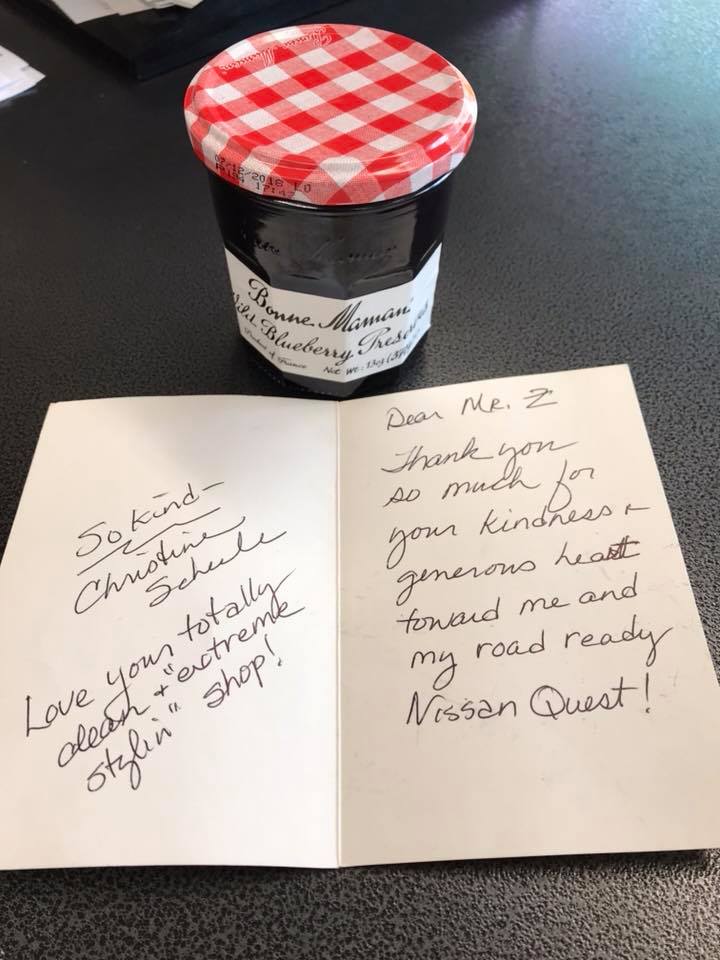 07/12/2018 LO
17:4
Bonne Maman
Wild Blueberry Preserves
Product of France
Net Wt: 13oz
So kind-
Christine
Scheele
Love your totally
clean + "extreme
stylin" shop!
Dear Mr. Z
Thank you
so much for
your kindness +
generous heart
toward me and
my road ready
Nissan Quest!